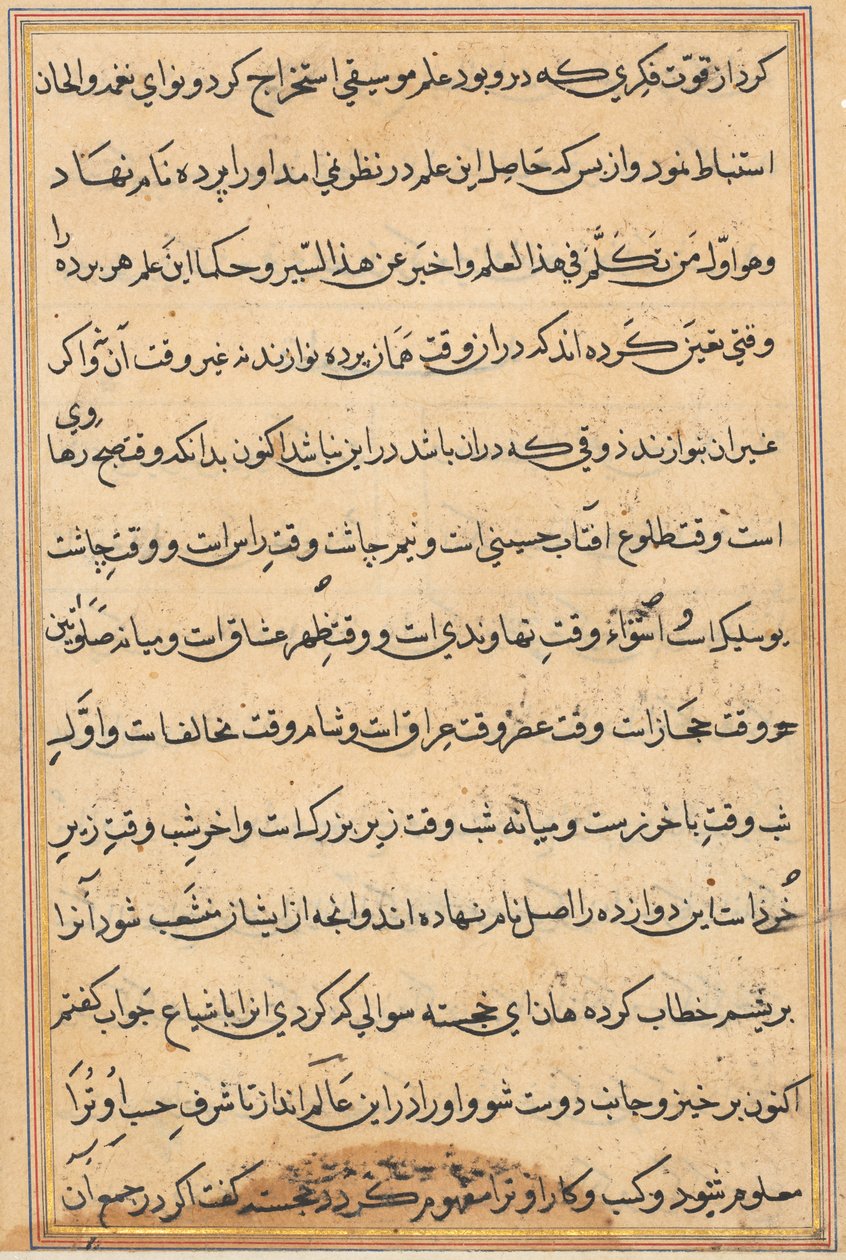 کرد از قوّت فکري که درو بود علم موسیقي استخراج کرد و نواي نغمه و الحان
استنباط نمود و از بس که حَاصِل این علم در نظر نمي امد او را پرده نَام نهَاد
و هو اوّل مَن تَکَلَّمَ في هذا العلم و اخبَر عن هذا السّیر و حکما این علم هر پرده را
وقتي تعینَ کَرده اند که در ان وقت هَمَان پرده نوازند نه غیر وقت آن و اکر
غیر ان بنوازند ذوقي که در ان باشد در این نباشد اکنون بدانکه وقت صبح رهاوي
است وقت طلوع افتاب حسیني است و نیم چاشت وقتِ راس است و وقتِ چاشت
بوسلیک است و استواء وقتِ نهاوندي است و وقتِ ظهر عشاق است و میانه صَلَوتین
وقت حجَاز است وقت عصر وقت عِراق است و شام وقت مخالف است و اوَّلِ
شب وقتِ باخرزست و میانه شب وقت زیر بزرک است و اخرِ شب وقتِ زیرِ
خُرد است این دوازده را اصل نام نهاده اند و انچه از ایشان منشَعب شود آنرا
بریشم خطاب کرده هان اي خجسته سوالي که کردي انرا باشباع جَواب کفتم
اکنون برخیز و جانب دوست شو و او را دَر این عَالم انداز تا شرفِ حسب او تُرَا
معلوم شود و کسب و کار او ترا مفهوم کردد خجسته کفت اکر در جمع ان